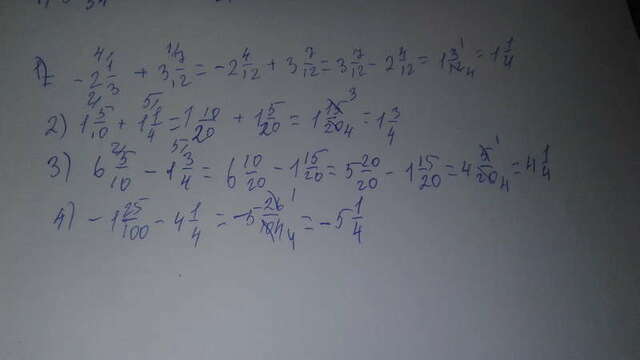 1) -2 1/3 + 3 7/12 = -2 4/12 + 3 7/12 = 3 7/12 - 2 4/12 = 1 3/12 = 1 1/4
2) 1 5/10 + 1 1/4 = 1 10/20 + 1 5/20 = 1 15/20 = 1 3/4
3) 6 5/10 - 1 3/4 = 6 10/20 - 1 15/20 = 5 20/20 - 1 15/20 = 4 5/20 = 4 1/4
4) -1 25/100 - 4 1/4 = -5 26/104 = -5 1/4